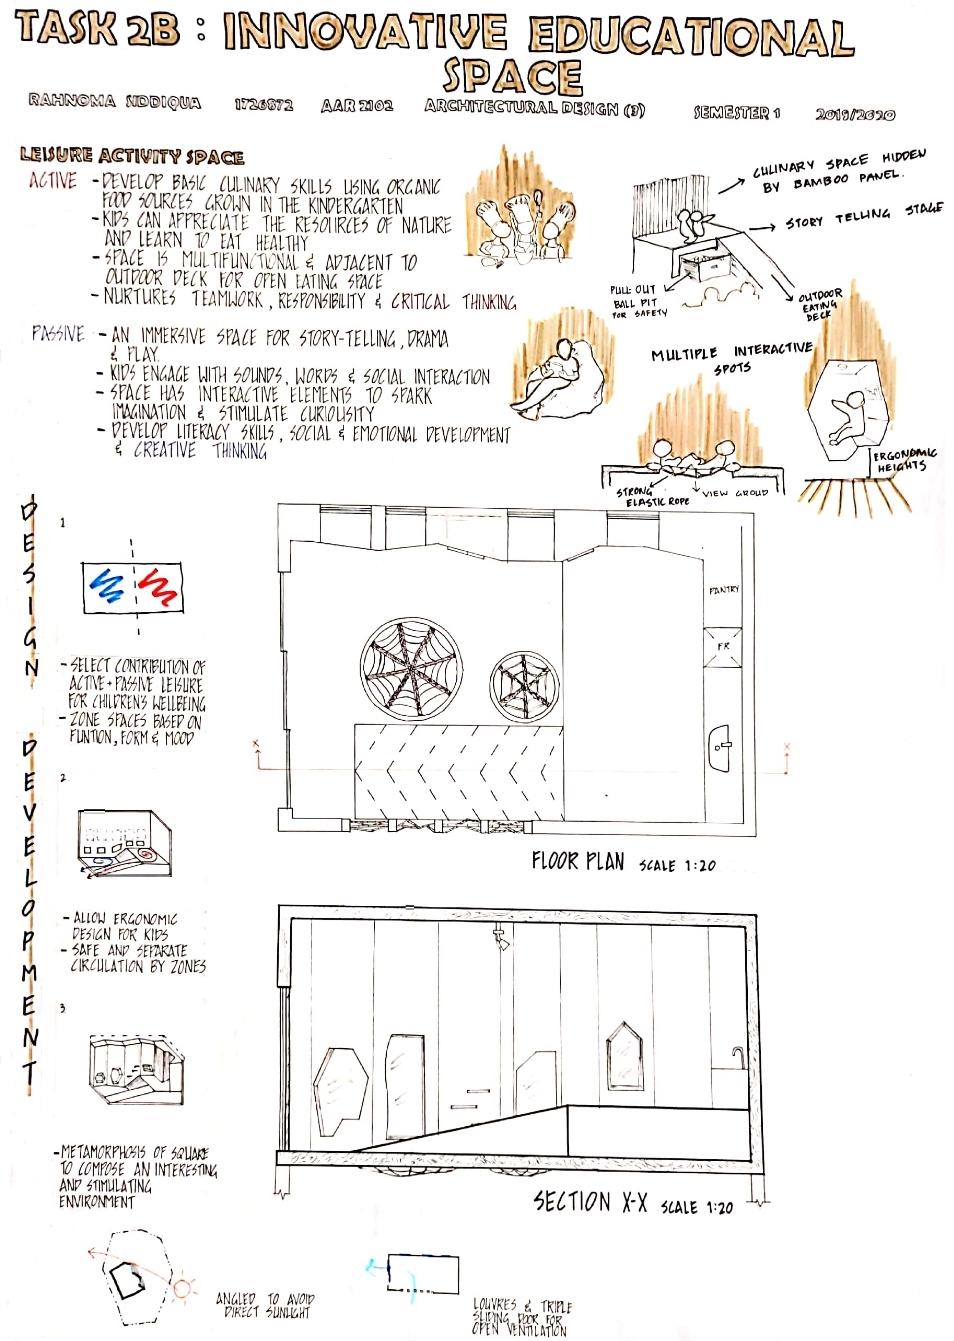 TASK 2B : INNOVATIVE EDUCATIONAL
SPACE
RAHNOMA SIDDIQUA 1726872 AAR 2102 ARCHITECTURAL DESIGN (3) SEMESTER 1 2019/2020
LEISURE ACTIVITY SPACE
ACTIVE - DEVELOP BASIC CULINARY SKILLS USING ORGANIC
FOOD SOURCES GROWN IN THE KINDERGARTEN
- KIDS CAN APPRECIATE THE RESOURCES OF NATURE
AND LEARN TO EAT HEALTHY
- SPACE IS MULTIFUNCTIONAL & ADJACENT TO
OUTDOOR DECK FOR OPEN EATING SPACE
- NURTURES TEAMWORK, RESPONSIBILITY & CRITICAL THINKING
PASSIVE - AN IMMERSIVE SPACE FOR STORY-TELLING, DRAMA
& PLAY.
- KIDS ENGAGE WITH SOUNDS, WORDS & SOCIAL INTERACTION
- SPACE HAS INTERACTIVE ELEMENTS TO SPARK
IMAGINATION & STIMULATE CURIOUSITY
- DEVELOP LITERACY SKILLS, SOCIAL & EMOTIONAL DEVELOPMENT
& CREATIVE THINKING
CULINARY SPACE HIDDEN
BY BAMBOO PANEL.
STORY TELLING STAGE
PULL OUT
BALL PIT
FOR SAFETY
OUTDOOR
EATING
DECK
MULTIPLE INTERACTIVE
SPOTS
STRONG
ELASTIC ROPE
VIEW GROUD
ERGONOMIC
HEIGHTS
DESIGN DEVELOPMENT
1
- SELECT CONTRIBUTION OF
ACTIVE + PASSIVE LEISURE
FOR CHILDREN'S WELLBEING
- ZONE SPACES BASED ON
FUNTION, FORM & MOOD
2
- ALLOW ERGONOMIC
DESIGN FOR KIDS
- SAFE AND SEPARATE
CIRCULATION BY ZONES
3
- METAMORPHOSIS OF SQUARE
TO COMPOSE AN INTERESTING
AND STIMULATING
ENVIRONMENT
PANTRY
FR
X
X
FLOOR PLAN SCALE 1:20
SECTION X-X SCALE 1:20
ANGLED TO AVOID
DIRECT SUNLIGHT
LOUVRES & TRIPLE
SLIDING DOOR FOR
OPEN VENTILATION